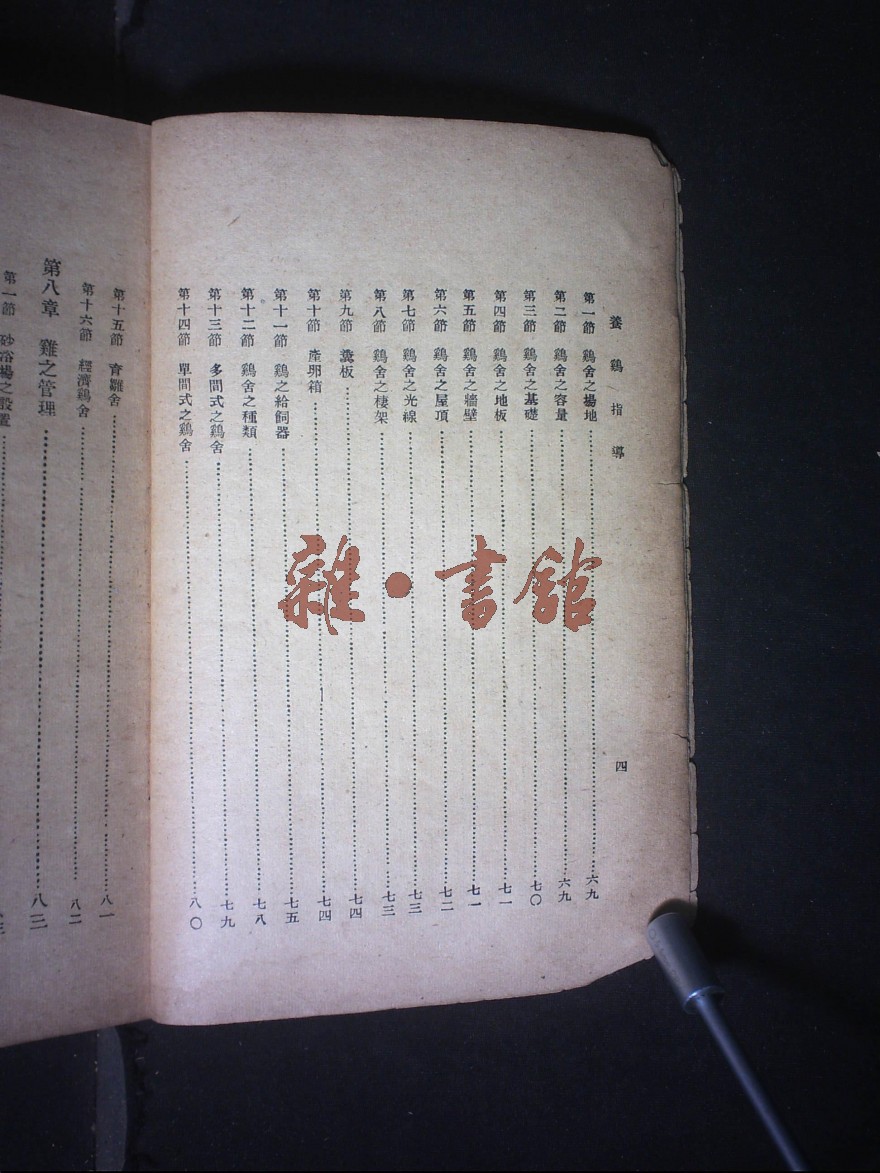 養鷄指導
四
第一節 鷄舍之場地 六九
第二節 鷄舍之容量 六九
第三節 鷄舍之基礎 七〇
第四節 鷄舍之地板 七一
第五節 鷄舍之牆壁 七一
第六節 鷄舍之屋頂 七二
第七節 鷄舍之光線 七三
第八節 鷄舍之棲架 七三
第九節 糞板 七四
第十節 產卵箱 七四
第十一節 鷄之給飼器 七五
第十二節 鷄舍之種類 七八
第十三節 多間式之鷄舍 七九
第十四節 單間式之鷄舍 八〇
第十五節 育雛舍 八一
第十六節 經濟鷄舍 八二
第八章 雞之管理 八三
第一節 砂浴場之設置
雜·書館